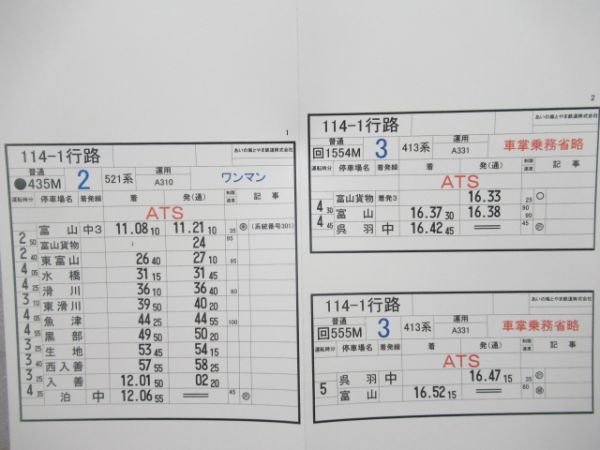 1
114-1行路
あいの風とやま鉄道株式会社
普通 運用 制限
●435M 2 521系 A310 ワンマン
運転時分 停車場名 着発線 着 発(通) 速度 記事
ATS
富山 中3 11.08 10 11.21 10 35 (系統番号301)
2 50 富山貨物 ↓ 24 95
2 40 東富山 26 40 27 10 95
4 05 水橋 31 15 31 45
4 滑川 36 10 36 40 80
3 10 東滑川 39 50 40 20
4 05 魚津 44 25 44 55 100
4 黒部 49 50 50 20
3 生地 53 45 54 15
3 西入善 57 55 58 25
3 入善 12.01 50 02 20
4 35 泊 中 12.06 55 45
2
114-1行路
あいの風とやま鉄道株式会社
普通 運用
回1554M 3 413系 A331 車掌乗務省略
運転時分 停車場名 着発線 着 発(通) 制限速度 記事
ATS
富山貨物 着発3 16.33 25 ○
4 30 富山 16.37 30 16.38 90
4 45 呉羽 中 16.42 45
114-1行路
あいの風とやま鉄道株式会社
普通 運用
回555M 3 413系 A331 車掌乗務省略
運転時分 停車場名 着発線 着 発(通) 制限速度 記事
ATS
呉羽 中 16.47 15 35
5 富山 16.52 15 60